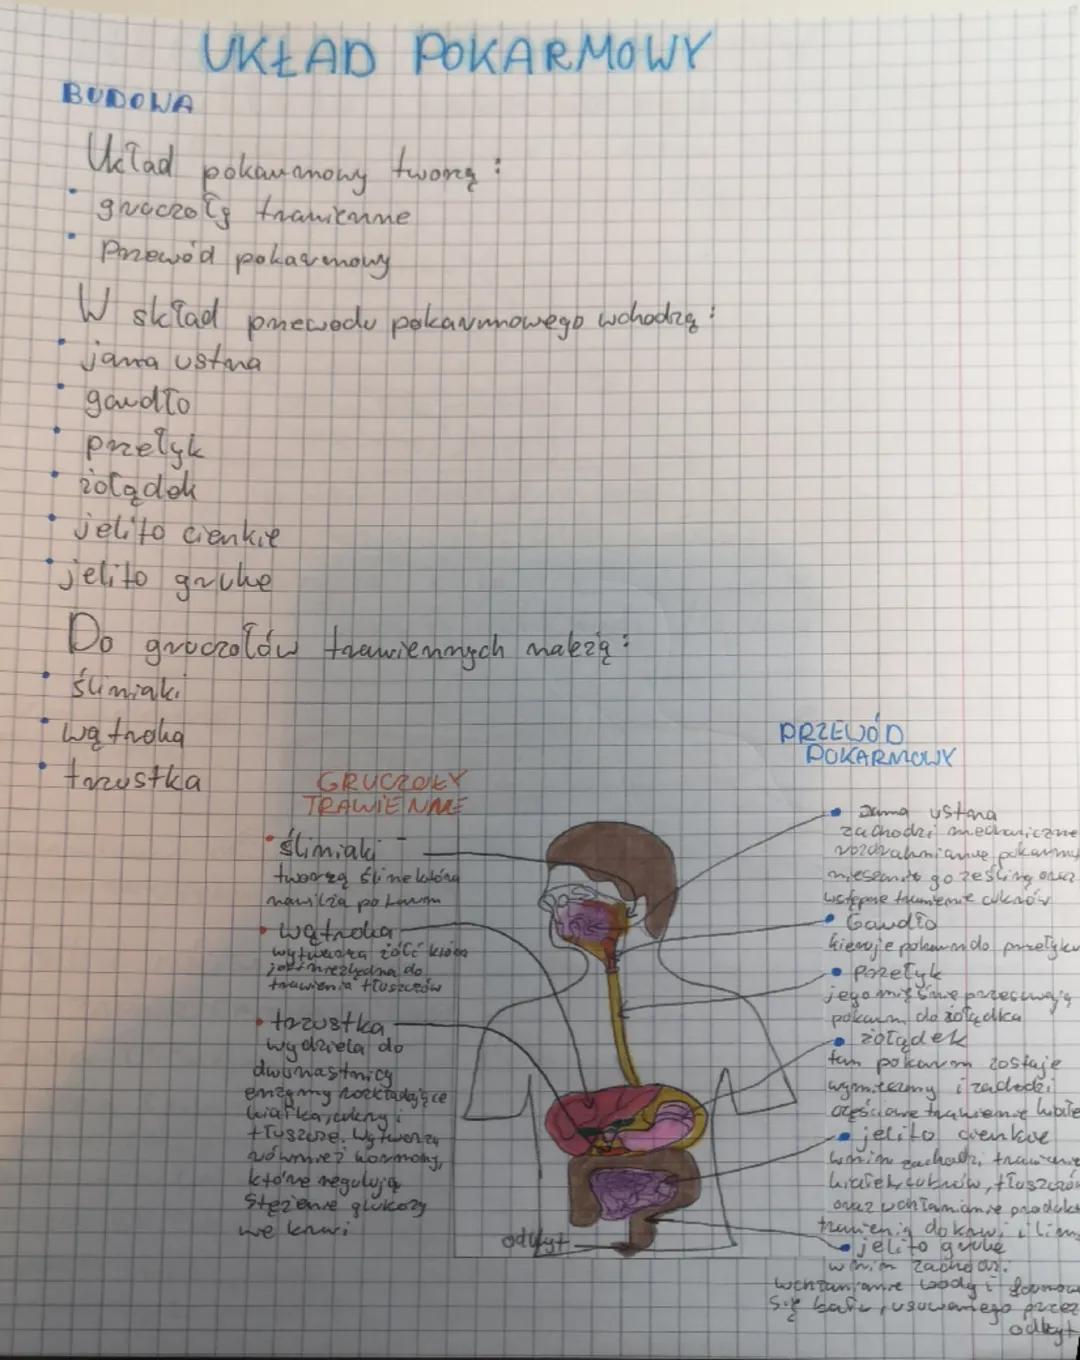 UKŁAD POKARMOWY
BUDOWA
Układ pokarmowy tworzą:
• gruczoły trawienne
• Przewód pokarmowy
W skład przewodu pokarmowego wchodzą:
• jama ustna
• gardło
• przełyk
• żołądek
• jelito cienkie
• jelito grube
Do gruczołów trawiennych należą:
• śliniaki
• wątroba
• trzustka
GRUCZOŁY
TRAWIENNE
• śliniaki
tworzą ślinę która
nawilża pokarm
• wątroba
wytwarza żółć która
jest niezbędna do
trawienia tłuszczów
• trzustka
wydziela do
dwunastnicy
enzymy rozkładające
białka, cukry i
tłuszcze. Wytwarza
również hormony,
które regulują
stężenie glukozy
we krwi
odbyt
PRZEWÓD
POKARMOWY
• Jama ustna
zachodzi mechaniczne
rozdrabnianie pokarmu
go ze śliną oraz
wstępne trawienie cukrów
• Gardło
kieruje pokarm do przełyku
• przełyk
jego mięśnie przesuwają
pokarm do żołądka
• żołądek
tam pokarm zostaje
i zachodzi
częściowe trawienie białe
• jelito cienkie
w nim zachodzi trawienie
białek, cukrów, tłuszczów
oraz wchłanianie produkt
trawienia do krwi i lim
• jelito grube
w nim zachodzi
wchłanianie wody i formow
się kału, usuwanego przez
odbyt